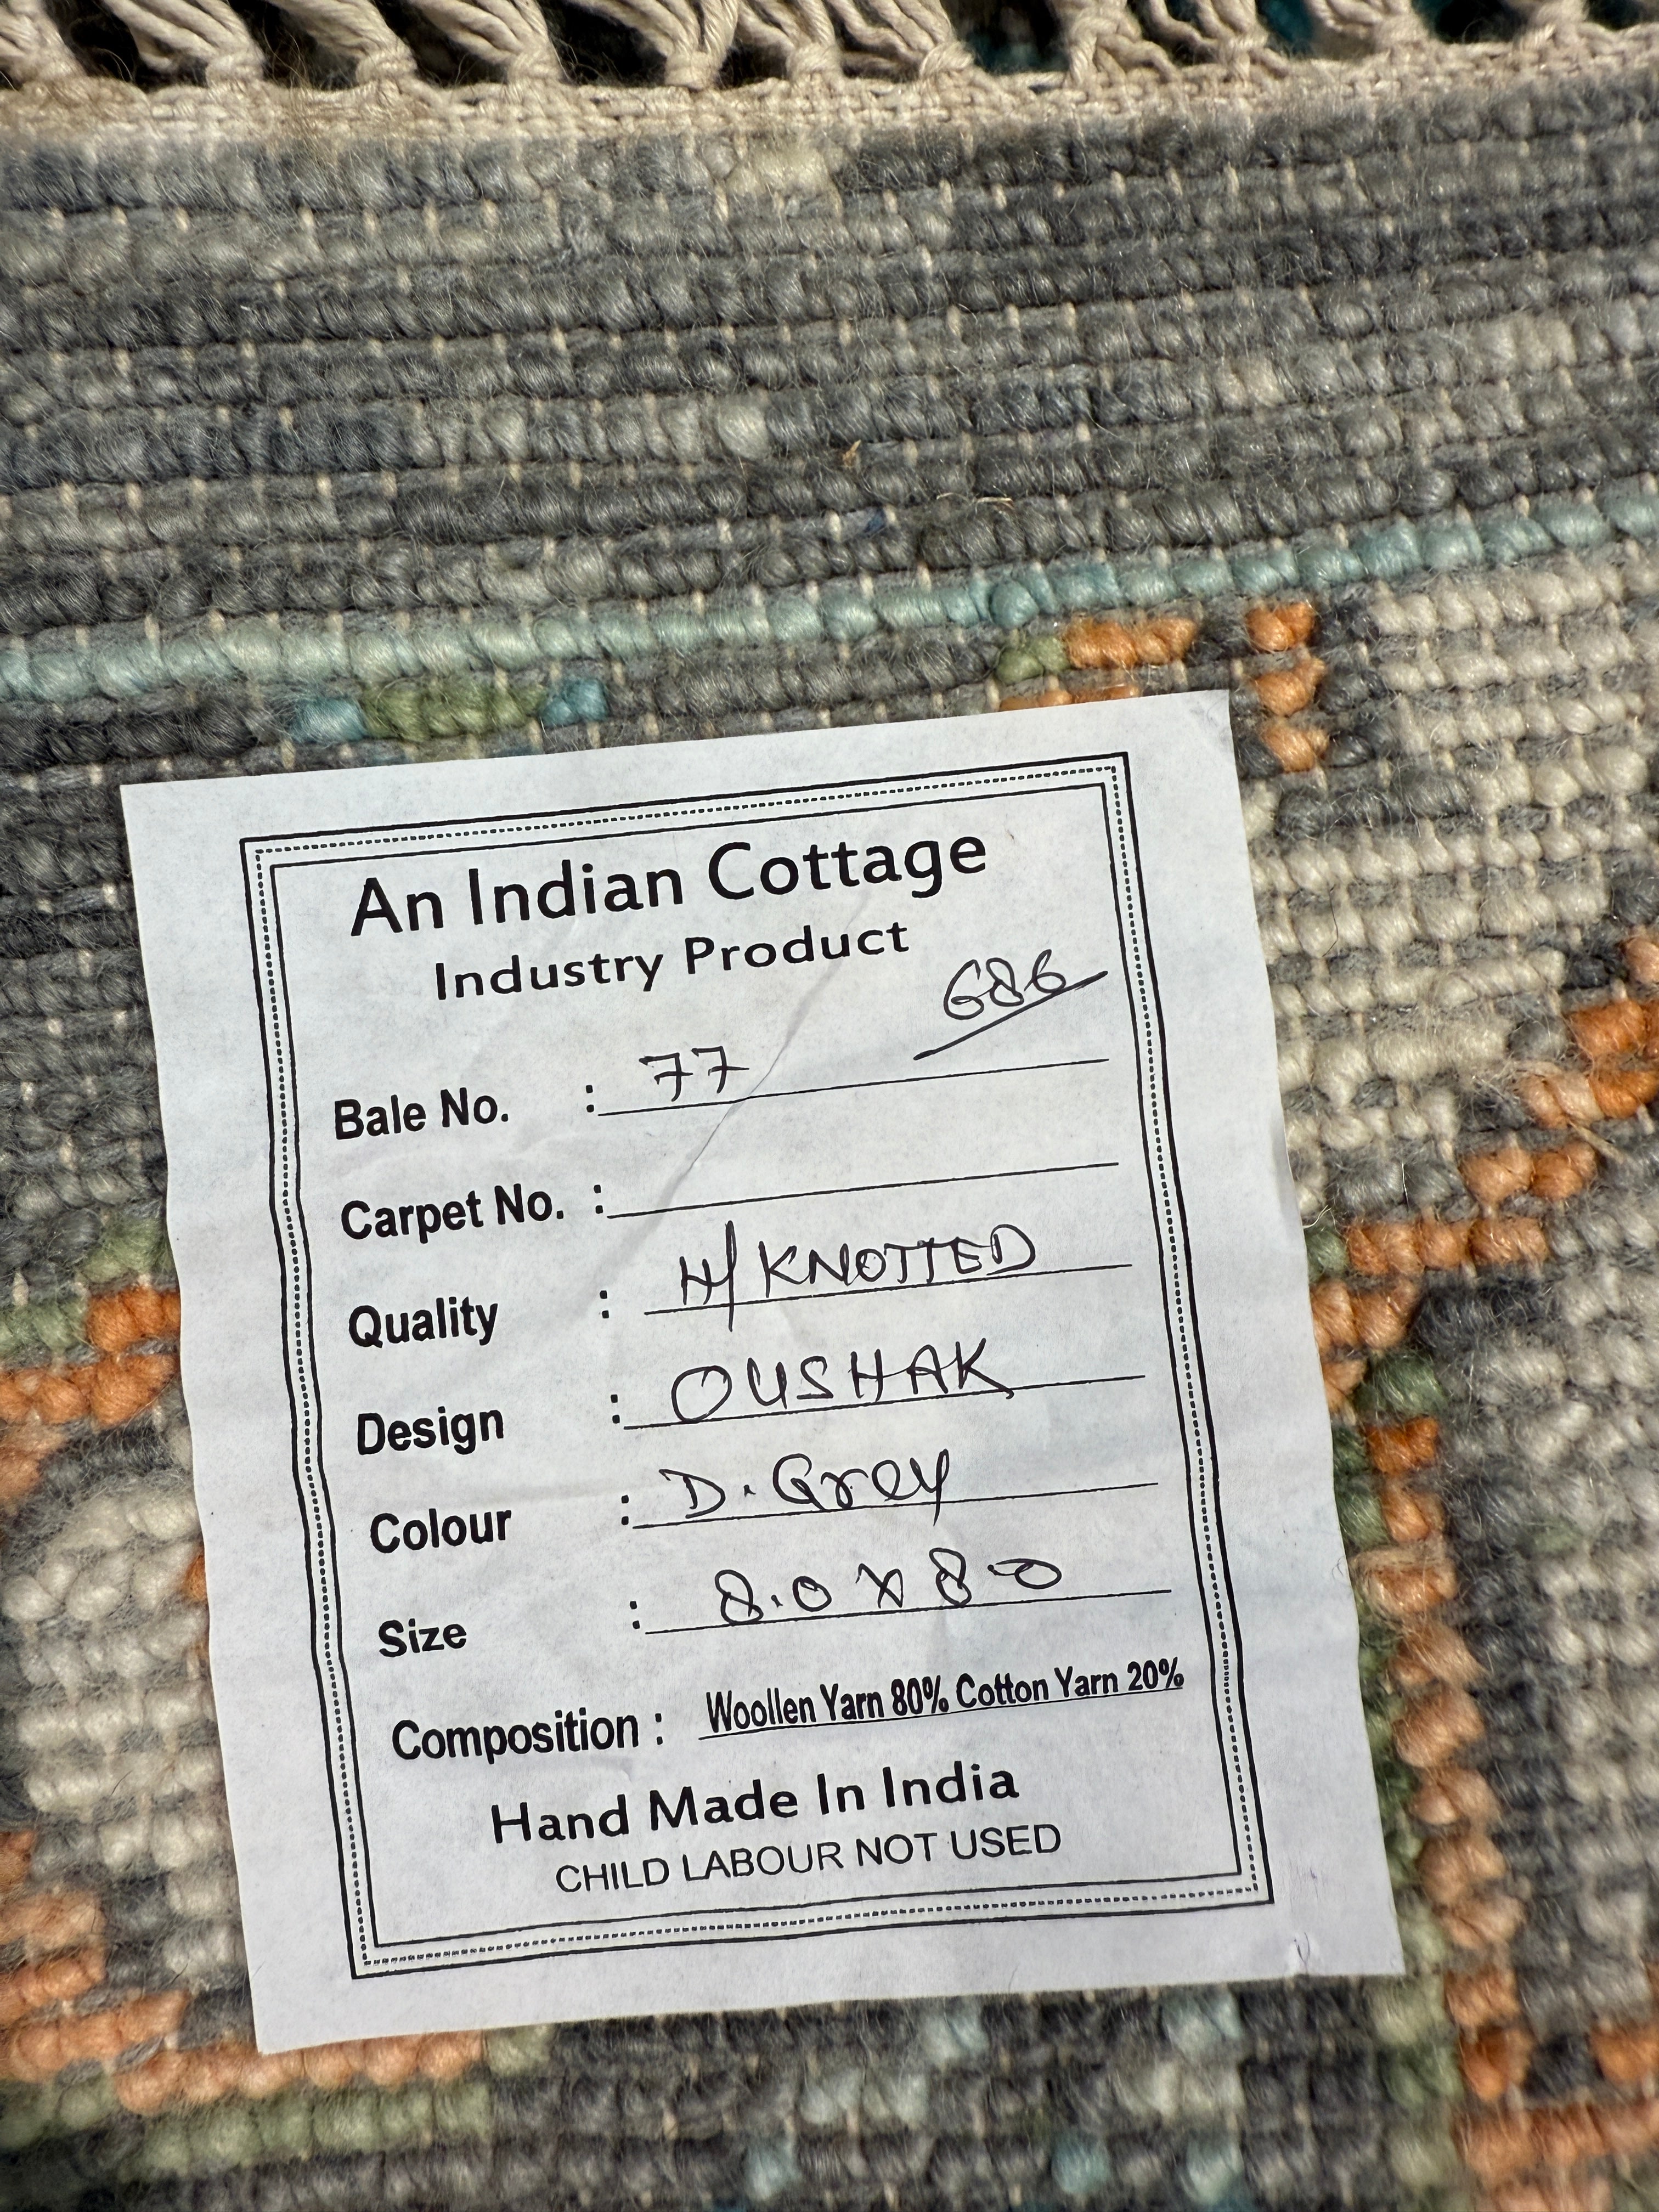 An Indian Cottage
Industry Product
686
Bale No. : 77
Carpet No. :
Quality : H/KNOTTED
Design : OUSHAK
Colour : D. Grey
Size : 8.0 x 8.0
Composition : Woollen Yarn 80% Cotton Yarn 20%
Hand Made In India
CHILD LABOUR NOT USED